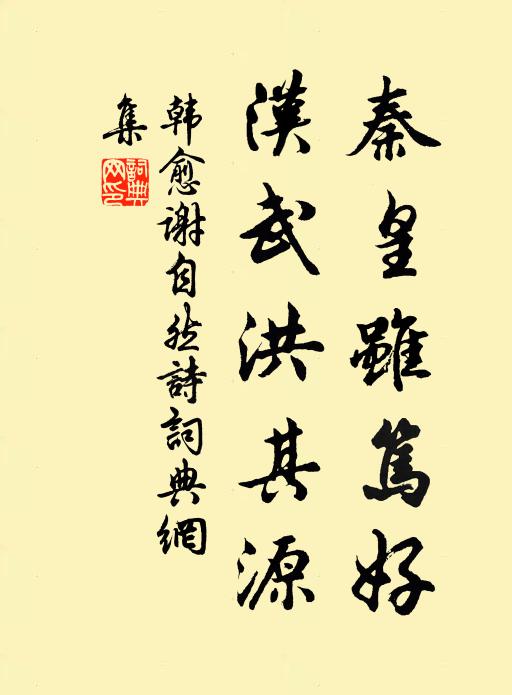 秦皇雖篤好
漢武洪其源
韓愈謝自然詩詞典網
集
詞典网印